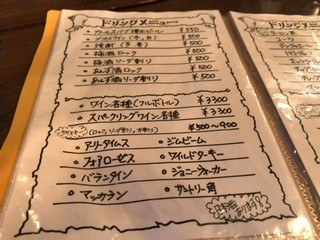 ドリンクメニュー
¥550
グラスワイン(赤、白) ¥500
焼酎(芋、麦) ¥500
梅酒ロック ¥500
梅酒ソーダ割り ¥500
あんず酒ロック ¥500
あんず酒ソーダ割り ¥500
ワイン各種(フルボトル) ¥3300
スパークリングワイン各種 ¥3300
ウイスキー (ロック、ソーダ割り、水割り) ¥500~900
アーリータイムス
ジムビーム
フォアローゼス
ワイルドターキー
バランタイン
ジョニーウォーカー
マッカラン
サントリー角
日本酒あります!
ドリンクメニュー